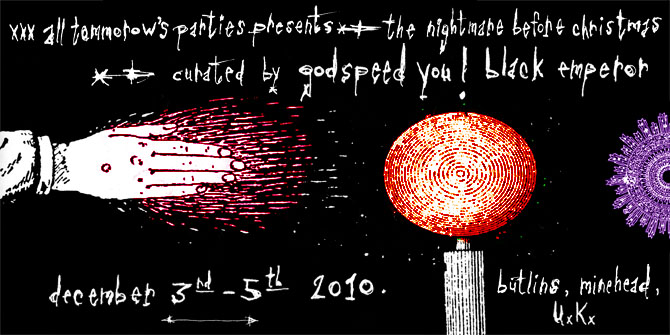 xxx all tommorow's parties presents the nightmare before christmas
curated by godspeed you! black emperor
december 3rd - 5th 2010.
butlins, minehead,
UxKx